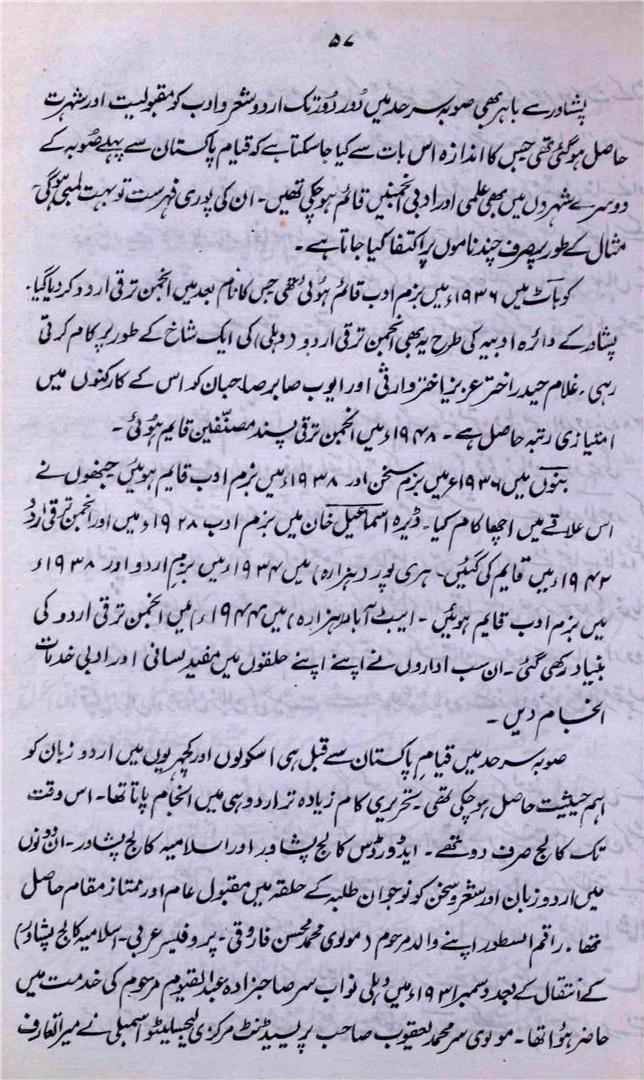 ۵۷
پشاور سے باہر بھی صوبہ سرحد میں دور دور تک اردو شعر و ادب کو مقبولیت اور شہرت
حاصل ہو گئی تھی جس کا اندازہ اس بات سے کیا جا سکتا ہے کہ قیام پاکستان سے پہلے صُوبہ کے
دوسرے شہروں میں بھی علمی اور ادبی انجمنیں قائم ہو چکی تھیں۔ ان کی پوری فہرست تو بہت لمبی ہوگی۔
مثال کے طور پر صرف چند ناموں پر اکتفا کیا جاتا ہے۔
کوہاٹ میں ۱۹۳۶ء میں بزم ادب قائم ہوئی تھی جس کا نام بعد میں انجمن ترقی اردو کر دیا گیا۔
پشاور کے دائرہ ادبیہ کی طرح یہ بھی انجمن ترقی اردو (دہلی) کی ایک شاخ کے طور پر کام کرتی
رہی۔ غلام حیدر اختر عزیز اختر وارثی اور ایوب صابر صاحبان کو اس کے کارکنوں میں
امتیازی رتبہ حاصل ہے۔ ۱۹۴۸ء میں انجمن ترقی پسند مصنّفین قایم ہوئی۔
بنّوں میں ۱۹۳۶ء میں بزم سخن اور ۱۹۳۸ء میں بزم ادب قایم ہوئیں جنھوں نے
اس علاقے میں اچھا کام کیا۔ ڈیرہ اسماعیل خان میں بزم ادب ۱۹۲۸ء میں اور انجمن ترقی اردو
۱۹۴۲ء میں قایم کی گئیں۔ ہری پور (ہزارہ) میں ۱۹۳۴ء میں بزمِ اردو اور ۱۹۳۸ء
میں بزم ادب قایم ہوئیں۔ ایبٹ آباد (ہزارہ) میں ۱۹۴۴ء میں انجمن ترقی اردو کی
بنیاد رکھی گئی۔ ان سب اداروں نے اپنے اپنے حلقوں میں مفید لسانی اور ادبی خدمات
انجام دیں۔
صوبہ سرحد میں قیامِ پاکستان سے قبل ہی اسکولوں اور کچہریوں میں اردو زبان کو
اہم حیثیت حاصل ہو چکی تھی۔ تحریری کام زیادہ تر اردو ہی میں انجام پاتا تھا۔ اس وقت
تک کالج صرف دو تھے۔ ایڈورڈس کالج پشاور اور اسلامیہ کالج پشاور۔ ان دونوں
میں اردو زبان اور شعر و سخن کو نوجوان طلبہ کے حلقہ میں مقبول عام اور ممتاز مقام حاصل
تھا۔ راقم السطور اپنے والد مرحوم (مولوی محمد محسن فاروقی۔ پروفیسر عربی۔ اسلامیہ کالج پشاور)
کے انتقال کے بعد دسمبر ۱۹۳۱ء میں دہلی نواب سر صاحبزادہ عبدالقیوم مرحوم کی خدمت میں
حاضر ہوا تھا۔ مولوی سر محمد یعقوب صاحب پریسیڈنٹ مرکزی لیجسلیٹو اسمبلی نے میرا تعارف